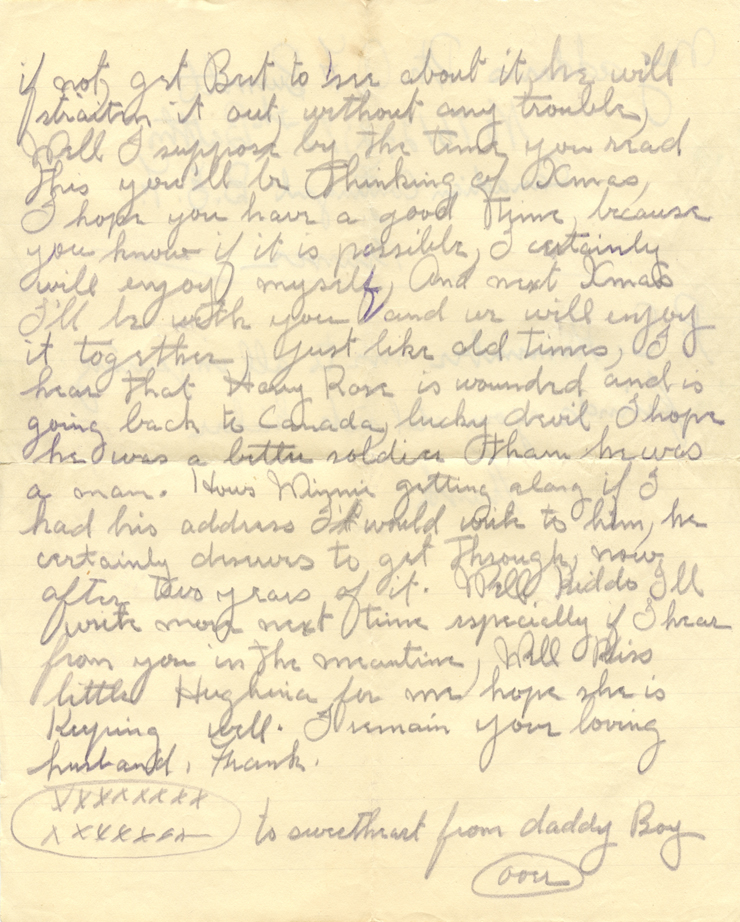 if not, get Bert to see about it, he will
straiten it out, without any trouble,
Well I suppose by the time you read
this you'll be thinking of Xmas,
I hope you have a good time, because
you know if it is possible, I certainly
will enjoy myself, And next Xmas
I'll be with you and we will enjoy
it together, just like old times, I
hear that Harry Rose is wounded and is
going back to Canada, lucky devil I hope
he was a better soldier than he was
a man. Hows Winnie getting along if I
had his address I would write to him, he
certainly deserves to get through, now
after two years of it. Well Kiddo I'll
write more next time especially if I hear
from you in the meantime, Well Kiss
little Hughina for me hope she is
keeping well. I remain your loving
husband, Frank.
xxxxxxxx
xxxxxxx to sweetheart from daddy Boy
over